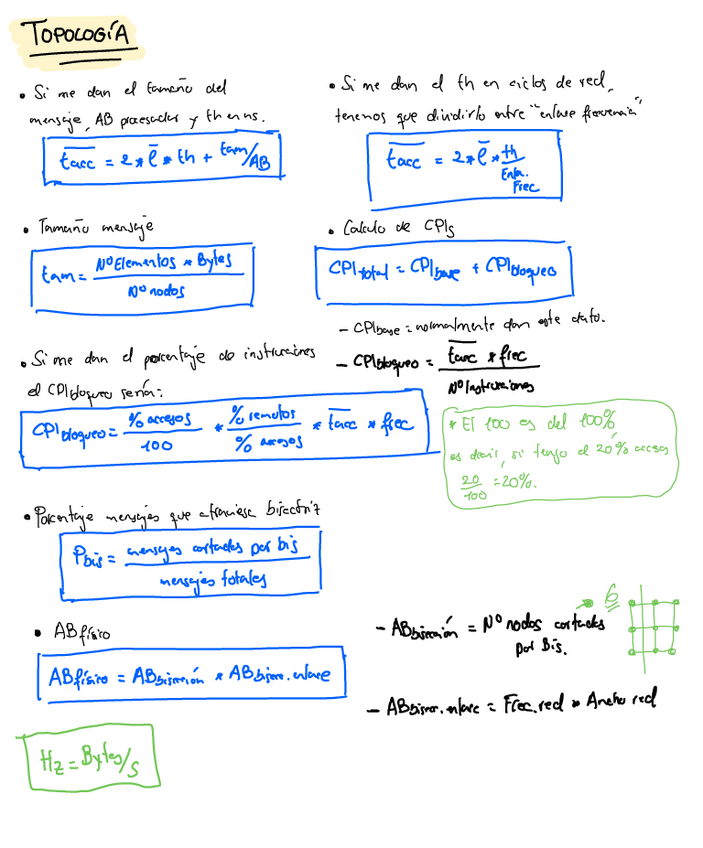 TOPOLOGÍA
• Si me dan el tamaño del
mensaje, AB procesador y th en ns.
t̅acc = 2 * l̅ * th + tam/AB
• Si me dan el th en ciclos de red,
tenemos que dividirlo entre "enlace frecuencia"
t̅acc = 2 * l̅ * th / Enla. Frec
• Tamaño mensaje
tam = Nº Elementos * Bytes / Nº nodos
• Calculo de CPIs
CPI total = CPI base + CPI bloqueo
- CPI base = normalmente dan este dato.
- CPI bloqueo = t̅acc * frec / Nº Instrucciones
• Si me dan el porcentaje de instrucciones
el CPI bloqueo sería:
CPI bloqueo = % accesos / 100 * % remotos / % accesos * t̅acc * frec
* El 100 es del 100%
es decir, si tengo el 20% accesos
20/100 = 20%.
• Porcentaje mensajes que atraviesa bisección
Pbis = mensajes cortados por bis / mensajes totales
• AB físico
AB físico = AB bisección * AB bisecc. enlace
- AB bisección = Nº nodos cortados
por Bis.
6
- AB bisecc. enlace = Frec. red * Ancho red
Hz = Bytes/s